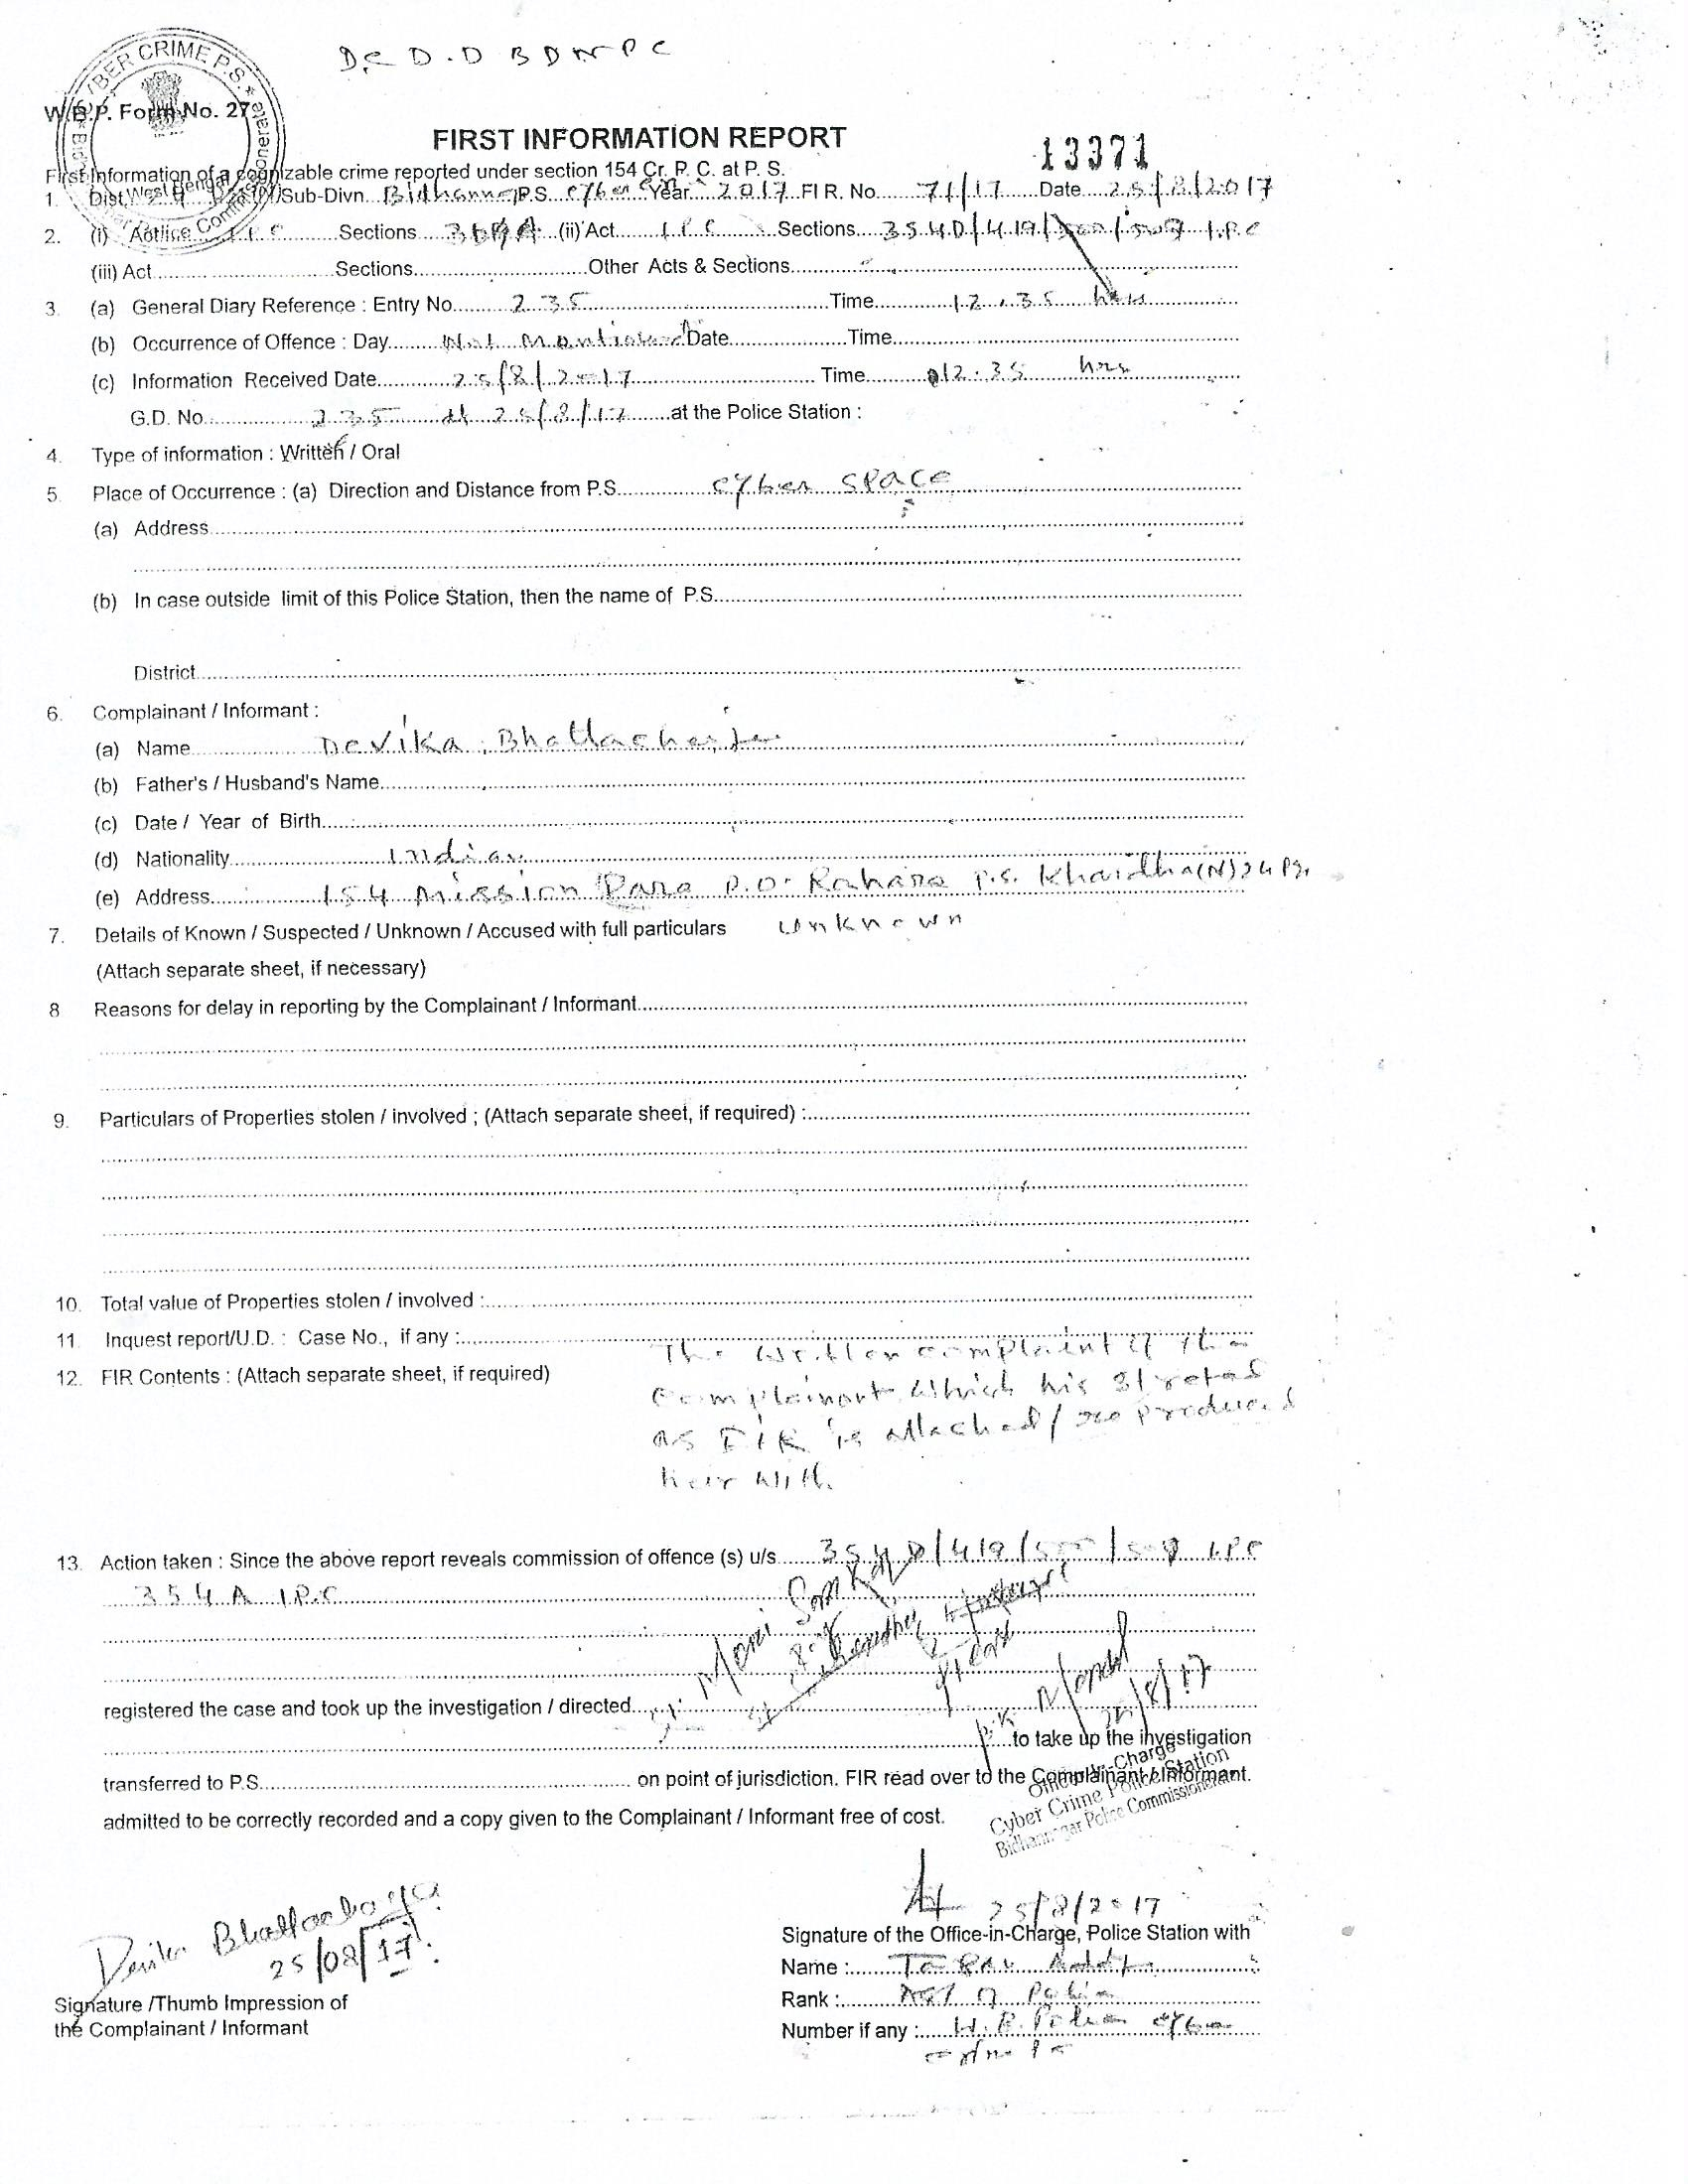 DC D.D BDNPC
CYBER CRIME P.S.
W.B.P. Form No. 27
FIRST INFORMATION REPORT
13371
First Information of a cognizable crime reported under section 154 Cr. P. C. at P. S.
1. Dist. West Bengal /Sub-Divn. P.S. Cyber Year 2017 FIR. No. 71/17 Date 25/8/2017
2. (i) Act I.P.C Sections (ii) Act I.P.C Sections 354D/419/ I.P.C
(iii) Act Sections Other Acts & Sections
3. (a) General Diary Reference : Entry No. 235 Time 12.35 hrs
(b) Occurrence of Offence : Day Not Mentioned Date Time
(c) Information Received Date 25/8/2017 Time 12.35 hrs
G.D. No. 235 dt 25/8/17 at the Police Station :
4. Type of information : Written / Oral
5. Place of Occurrence : (a) Direction and Distance from P.S. cyber space
(a) Address
(b) In case outside limit of this Police Station, then the name of P.S.
District
6. Complainant / Informant :
(a) Name Devika Bhattacharjee
(b) Father's / Husband's Name
(c) Date / Year of Birth
(d) Nationality Indian
(e) Address 154 Mission Para P.O- Rahara P.S. Khardha (N) 24 Pgs
7. Details of Known / Suspected / Unknown / Accused with full particulars unknown
(Attach separate sheet, if necessary)
8 Reasons for delay in reporting by the Complainant / Informant
9. Particulars of Properties stolen / involved ; (Attach separate sheet, if required) :
10. Total value of Properties stolen / involved :
11. Inquest report/U.D. : Case No., if any :
12. FIR Contents : (Attach separate sheet, if required) The written complaint of the
complainant which is treated
as FIR is attached / re produced
here with.
13. Action taken : Since the above report reveals commission of offence (s) u/s 354D/419/500/509 I.P.C
354A I.P.C
registered the case and took up the investigation / directed
to take up the investigation
transferred to P.S. on point of jurisdiction. FIR read over to the Complainant / Informant.
admitted to be correctly recorded and a copy given to the Complainant / Informant free of cost.
Officer-in-Charge
Cyber Crime Police Station
Bidhannagar Police Commissionerate
Devika Bhattacharjee
25/08/17
Signature /Thumb Impression of
the Complainant / Informant
25/8/2017
Signature of the Office-in-Charge, Police Station with
Name : Tapan
Rank : ASI of Police
Number if any : W.B. Police Cyber